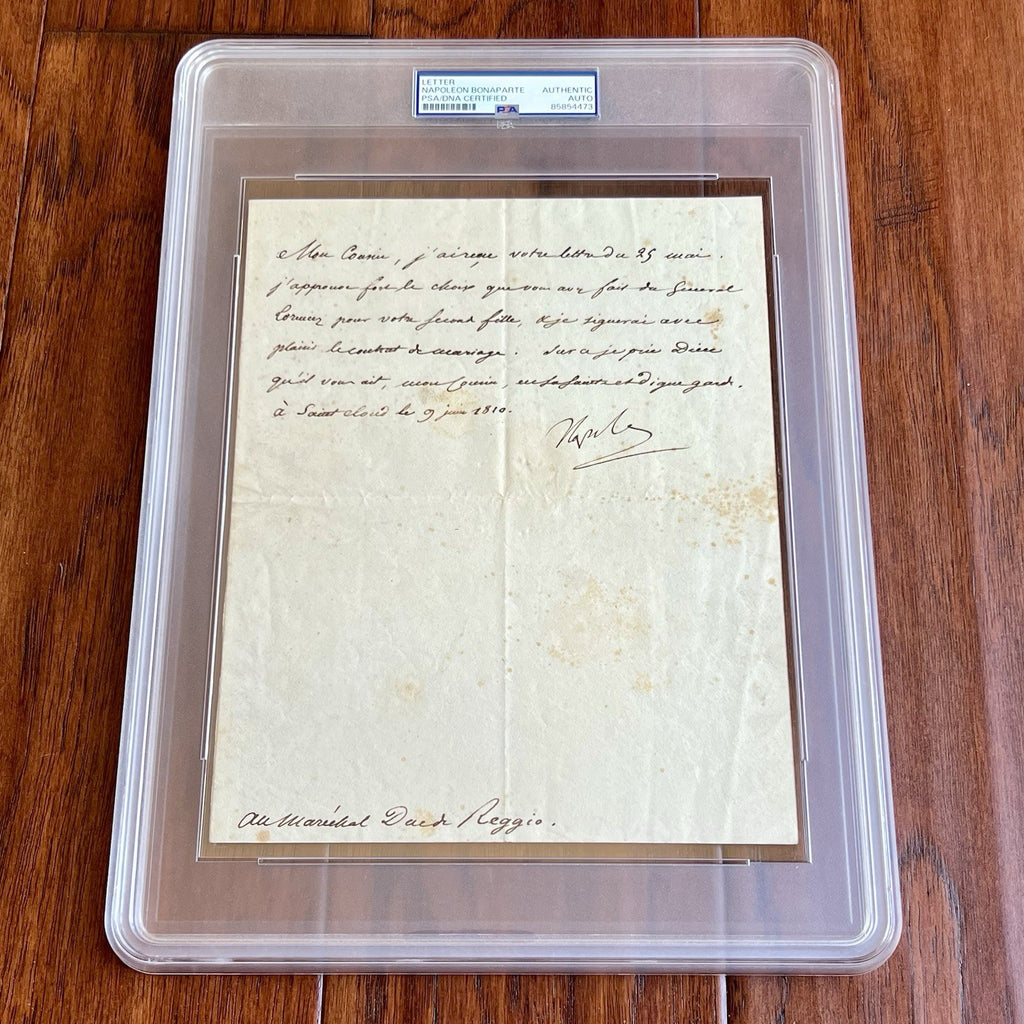 LETTER
NAPOLEON BONAPARTE AUTHENTIC
PSA/DNA CERTIFIED AUTO
PSA 85854473
PSA
Mon Cousin, j'ai reçu votre lettre du 25 mai.
j'approuve fort le choix que vous avez fait du General
pour votre second fille, & je signerai avec
plaisir le contrat de mariage. Sur ce je prie Dieu
qu'il vous ait, mon Cousin, en sa sainte et digne garde.
à Saint Cloud le 9 juin 1810.
Napole
Au Maréchal Duc de Reggio.